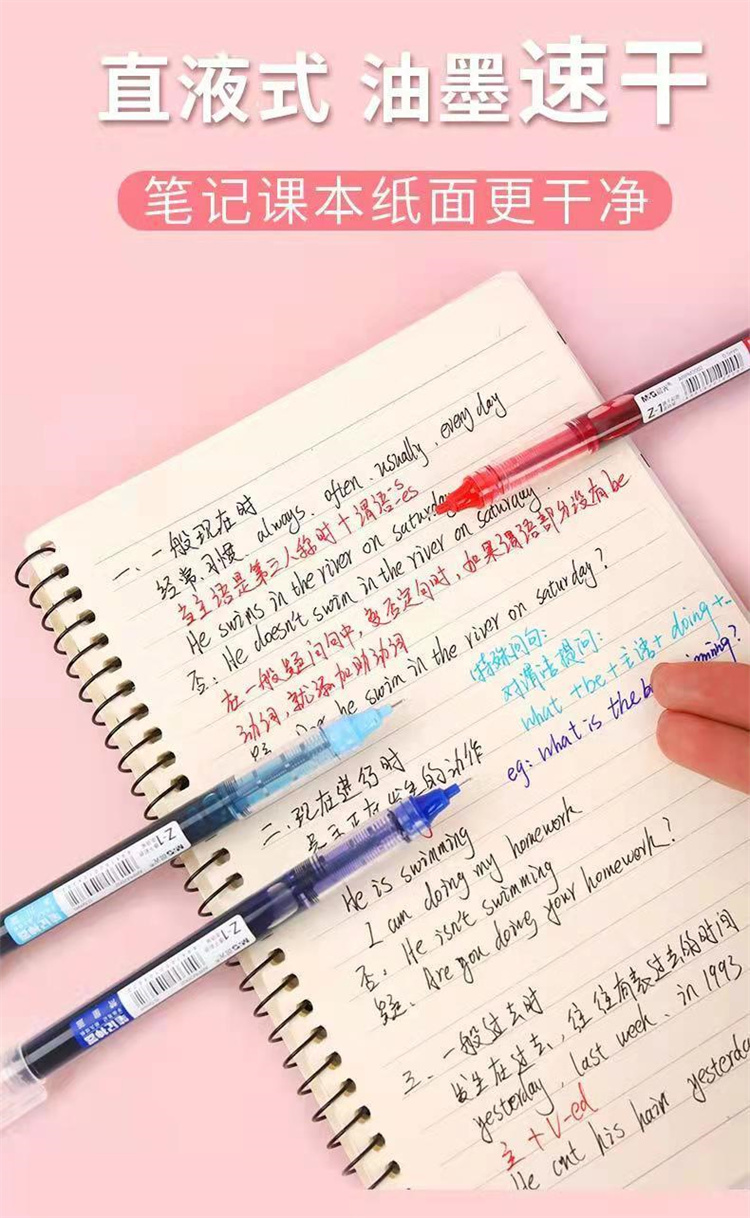 直液式 油墨速干
笔记课本纸面更干净
一、一般现在时
经常、习惯. always、often、usually、every day
主语是第三人称时+谓语-s
-es
He swims in the river on saturday.
否:He doesn't swim in the river on saturday.
在一般疑问句中,变否定句时,如果谓语部分没有be
动词,就添加助动词
he swim in the river on saturday?
特殊问句:
对谓语提问:
what +be+主语+ doing+
eg: what is the
二、现在进行时
正在发生的动作
He is swimming
I am doing my homework
否. He isn't swimming
疑. Are you doing your homework?
三、一般过去时
发生在过去,往往有表过去的时间
yesterday, last week、in 1993
主+V-ed
He cut his hair yesterday
M&G晨光
Z-1
M&G晨光
Z-1
M&G晨光
Z-1